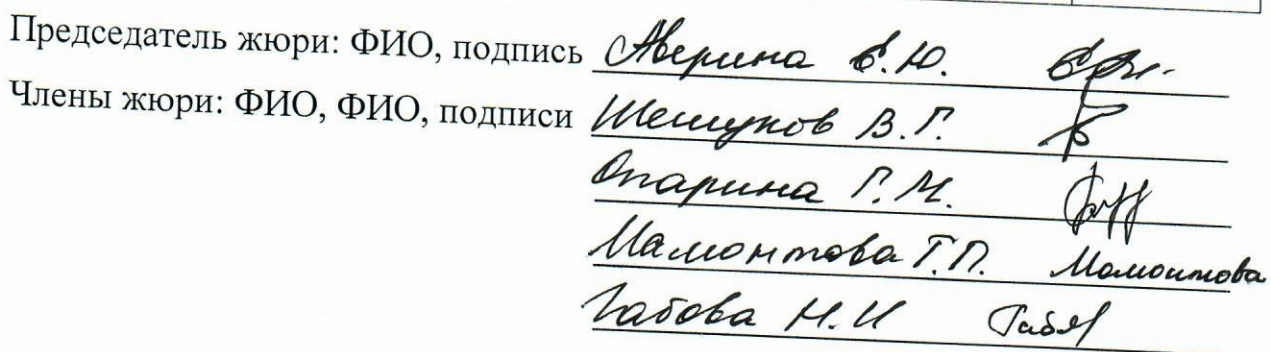 Председатель жюри: ФИО, подпись Аверина Е.Ю.
Члены жюри: ФИО, ФИО, подписи Шешуков В.Г.
Опарина Г.М.
Мамонтова Т.П. Мамонтова
Габова Н.И